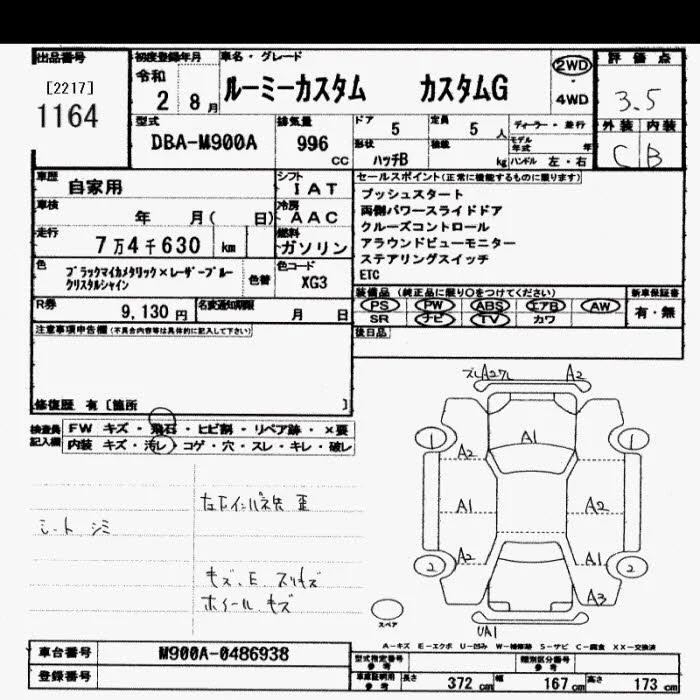 出品番号
[2217]
1164
初度登録年月
令和
2年 8月
車名・グレード
ルーミーカスタム カスタムG
2WD
・
4WD
評価点
3.5
外装 内装
C B
型式
DBA-M900A
排気量
996
CC
ドア
5
定員
5 人
形状
ハッチB
積載
kg
ディーラー・並行
モデル年式 年
ハンドル 左・右
車歴
自家用
シフト
IAT
車検
年 月( 日)
冷房
AAC
走行
7万4千630 km
燃料
ガソリン
色
ブラックマイカメタリック×レーザーブルー
クリスタルシャイン
色替
色コード
XG3
R券
9,130 円
名変通知期限
月 日
セールスポイント(正常に機能するものに限ります)
プッシュスタート
両側パワースライドドア
クルーズコントロール
アラウンドビューモニター
ステアリングスイッチ
ETC
装備品(純正品に限り○をつけてください)
PS PW ABS エアB AW
SR ナビ TV カワ
新車保証書
有・無
後日品
注意事項申告欄(不具合内容等は具体的に記入して下さい)
修復歴 有[箇所 ]
検査員
記入欄
FW キズ・飛石・ヒビ割・リペア跡・×要
内装 キズ・汚レ・コゲ・穴・スレ・キレ・破レ
シート シミ
キズ、E スリキズ
ホイール キズ
A2
A2
1
1
A1
A2
A1
A2
A2
A1
2
2
A3
UA1
スペア
A－キズ E－エクボ U－凹み W－補修跡 S－サビ C－腐食 XX－交換済
車台番号
M900A-0486938
登録番号
型式指定番号
参考
類別区分番号
参考
車庫証明用
参考
長さ 372 cm 幅 167 cm 高さ 173 cm